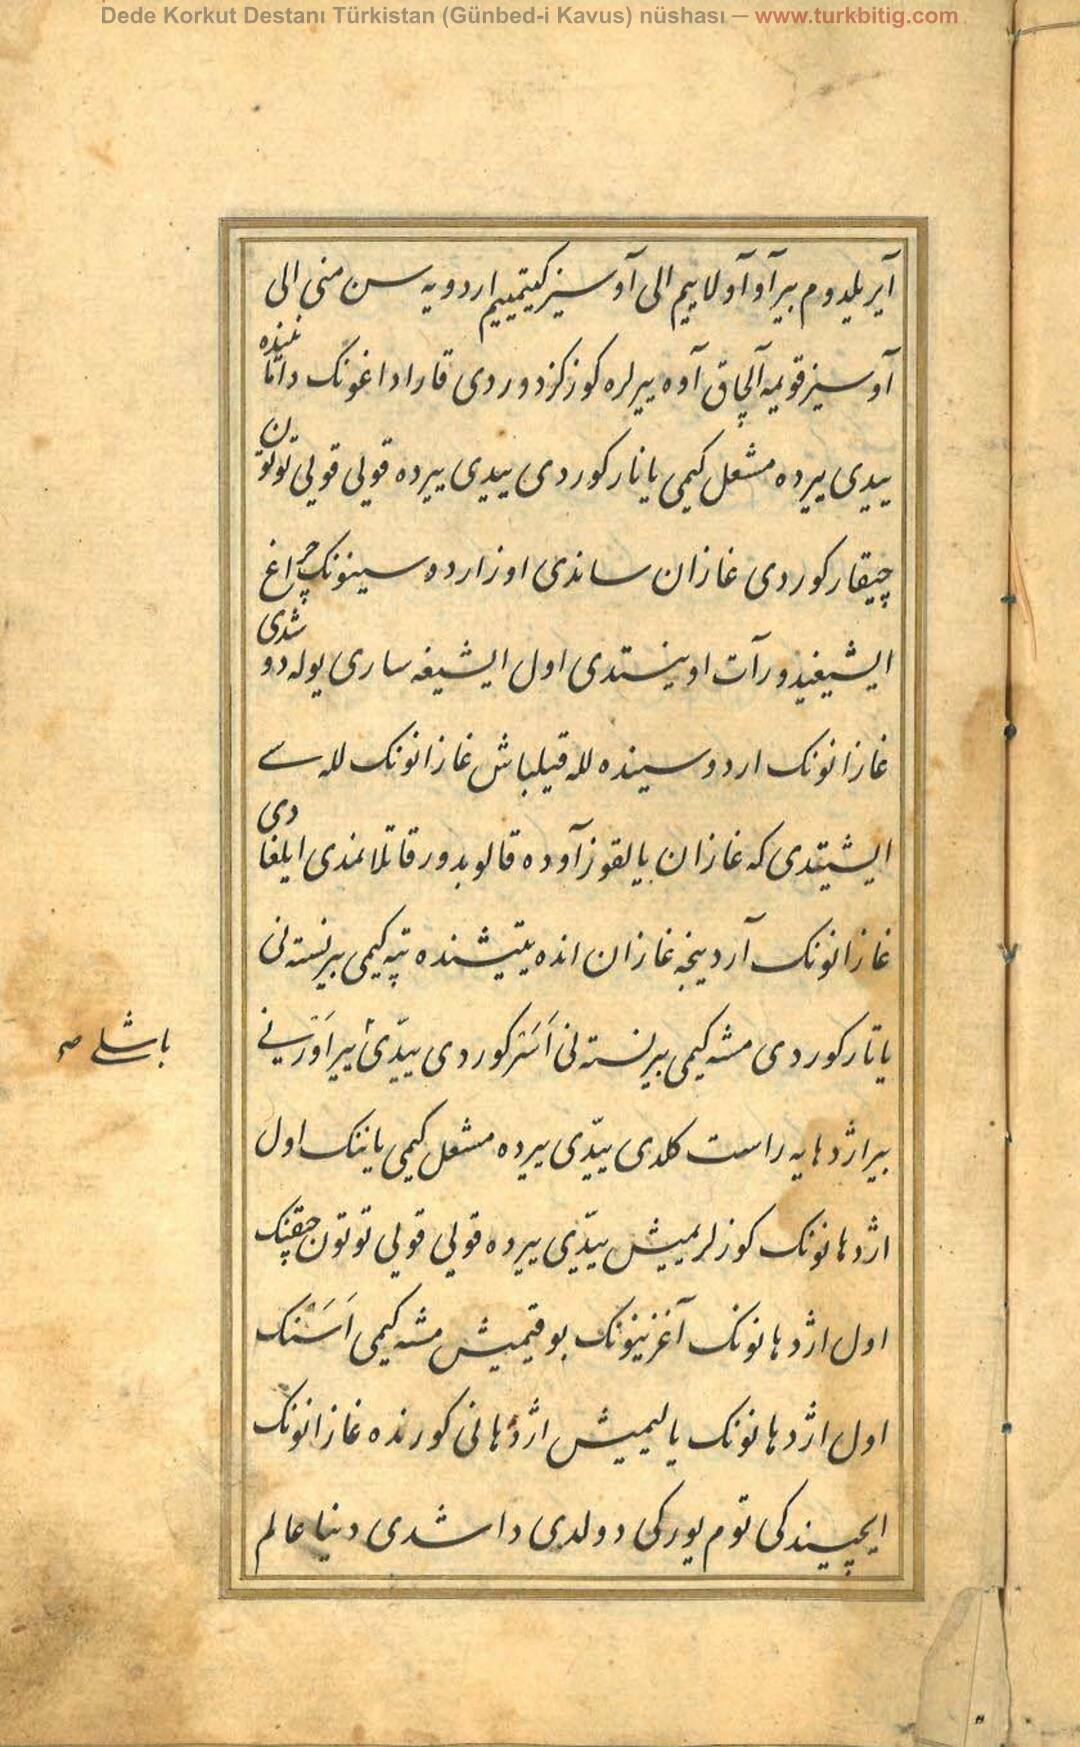 Dede Korkut Destanı Türkistan (Günbed-i Kavus) nüshası — www.turkbitig.com
آیریلیدوم بیر آو آولاییم الی آوسیز کیتمییم اردویه سن منی الی
آوسیز قویمه آلچاق آوه ییرلره کوز کزدوردی قارا داغونک داتما
ننده
ییدی ییرده مشعل کیمی یانار کوردی ییدی ییرده قولی قولی توتو
ن
چیقار کوردی غازان ساندی اوز ارده سینونک چراغ
ایشیغیدور آت اوینستدی اول ایشیغه ساری یوله دو
شدی
غازانونک اردوسینده لله قیلباش غازانونک لله سے
ایشیتدی که غازان یالقوز آوده قالوبدور قاتلانمدی ایلغا
دی
غازانونک آردینجه غازان انده یتیشنده تپه کیمی بیر نسته نی
یاتار کوردی مشه کیمی بیر نسته نی اَسَر کوردی ییدّی بیر اَوَرَنے
باشلے صح
بیر اژدهایه راست کلدی ییدّی ییرده مشعل کیمی یاننک اول
اژدهانونک کوزلریمیش ییدّی ییرده قولی قولی توتون چقنک
اول اژدهانونک آغزینونک بوقیمیش مشه کیمی اَسَنک
اول اژدهانونک یالیمیش اژدهانی کورنده غازانونک
ایچیندکی توم یورکی دولدی داشدی دنیا عالم